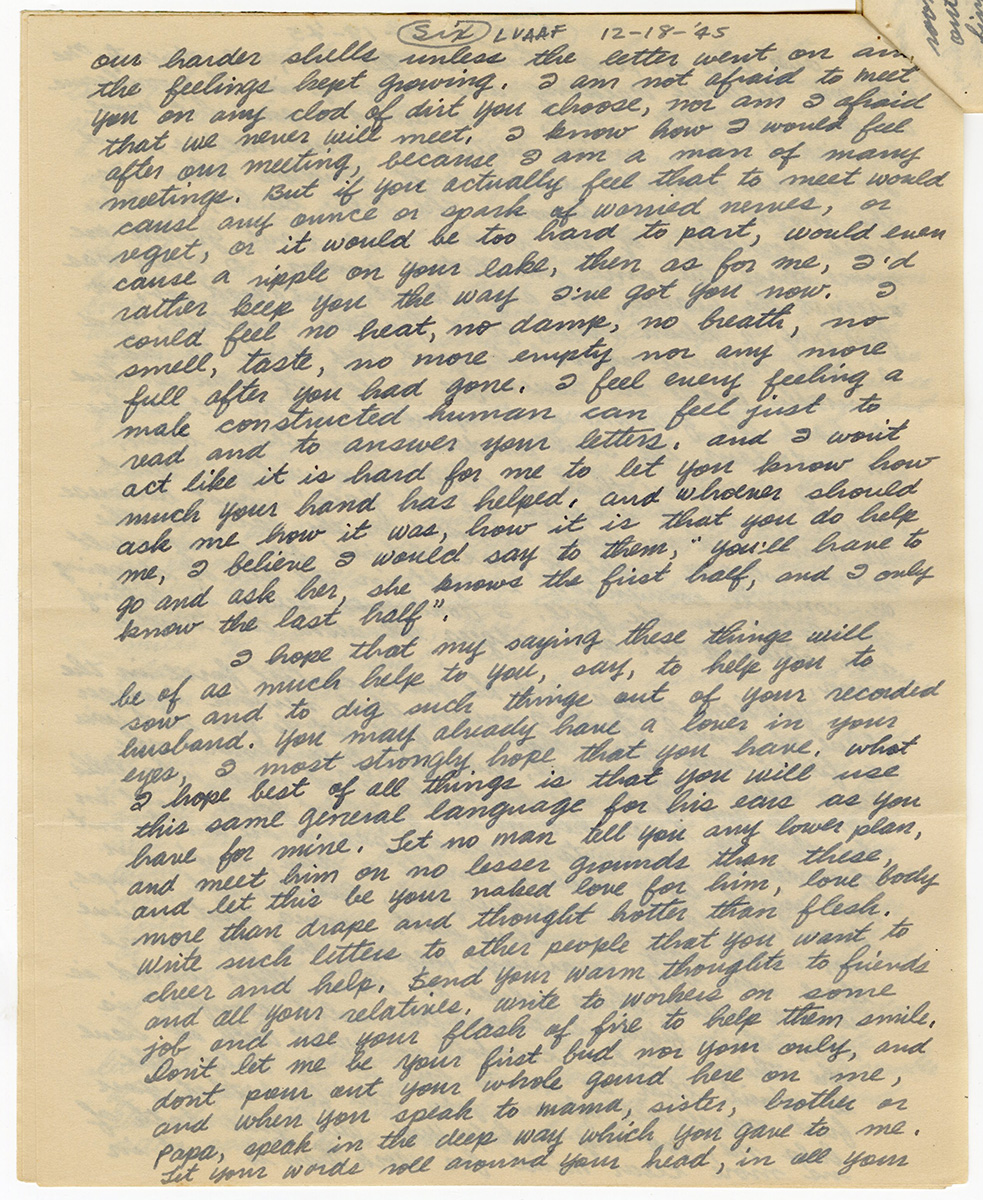 Six LVAAF 12-18-'45
our harder shells unless the letter went on and
the feelings kept growing. I am not afraid to meet
you on any clod of dirt you choose, nor am I afraid
that we never will meet. I know how I would feel
after our meeting, because I am a man of many
meetings. But if you actually feel that to meet would
cause any ounce or spark of worried nerves, or
regret, or it would be too hard to part, would even
cause a ripple on your lake, then as for me, I'd
rather keep you the way I've got you now. I
could feel no heat, no damp, no breath, no
smell, taste, no more empty nor any more
full after you had gone. I feel every feeling a
male constructed human can feel just to
read and to answer your letters. and I won't
act like it is hard for me to let you know how
much your hand has helped. and whoever should
ask me how it was, how it is that you do help
me, I believe I would say to them, "you'll have to
go and ask her, she knows the first half, and I only
know the last half".
I hope that my saying these things will
be of as much help to you, say, to help you to
sow and to dig such things out of your recorded
husband. You may already have a lover in your
eyes, I most strongly hope that you have. what
I hope best of all things is that you will use
this same general language for his ears as you
have for mine. Let no man tell you any lower plan,
and meet him on no lesser grounds than these,
and let this be your naked love for him, love body
more than drape and thought hotter than flesh.
Write such letters to other people that you want to
cheer and help. Send your warm thoughts to friends
and all your relatives. write to workers on some
job and use your flash of fire to help them smile.
Don't let me be your first bud nor your only, and
dont pour out your whole gourd here on me,
and when you speak to mama, sister, brother or
Papa, speak in the deep way which you gave to me.
Let your words roll around your head, in all your